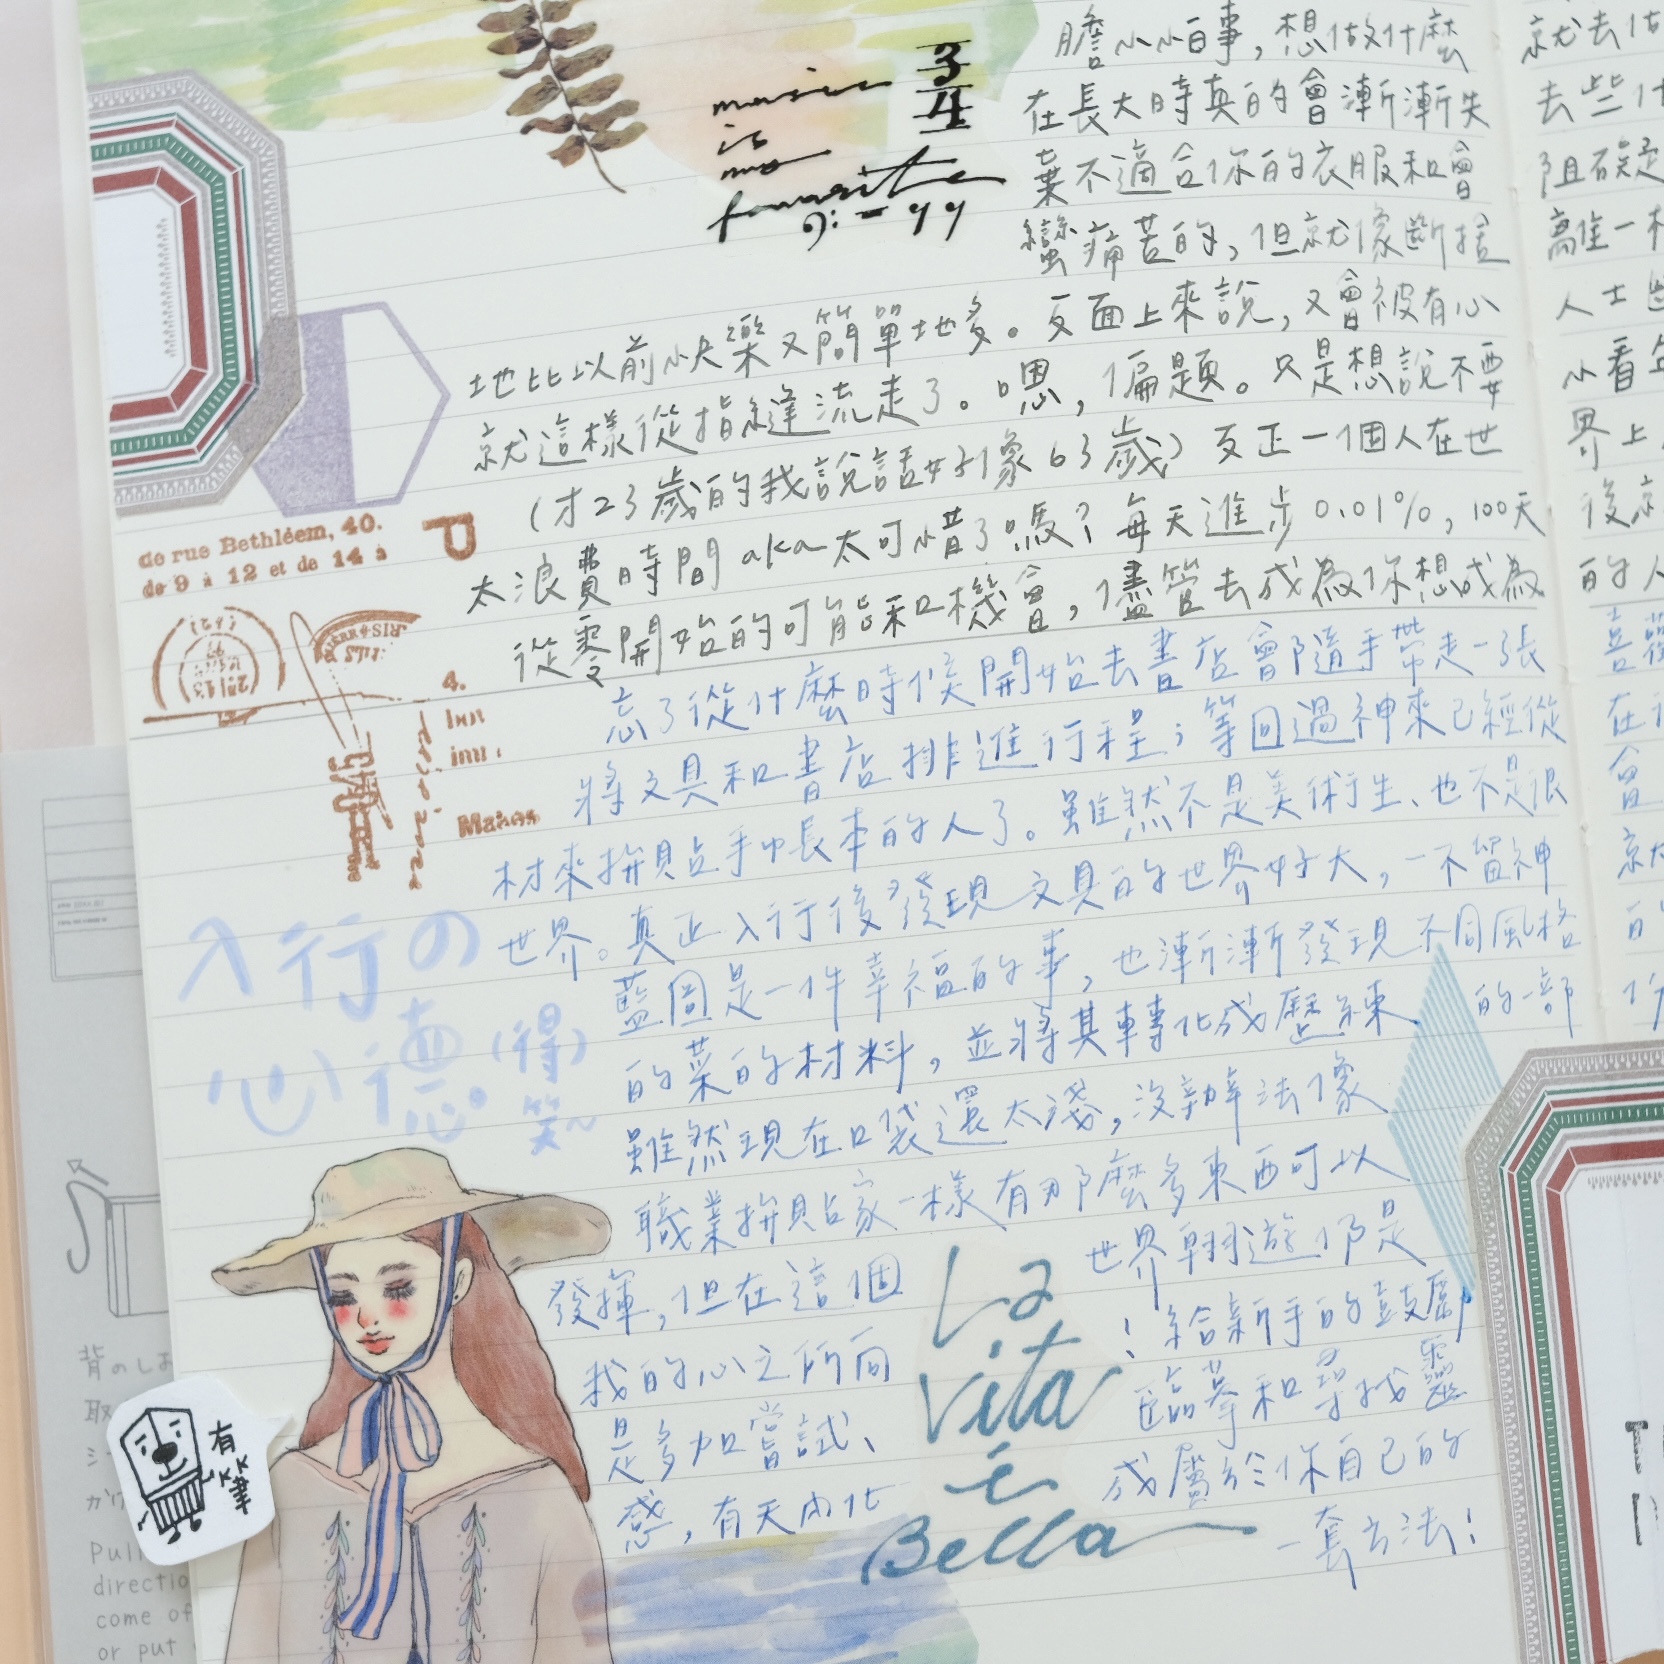 膽小小百事,想做什麼
在長大時真的會漸漸失
棄不適合你的衣服和會
蠻痛苦的,但就像斷捨
地比以前快樂又簡單地多。反面上來說,又會被有心
就這樣從指縫流走了。嗯,偏題。只是想說不要
(才23歲的我說話好像63歲)反正一個人在世
太浪費時間aka太可惜了嗎?每天進步0.01%,100天
從零開始的可能和機會,儘管去成為你想成為
忘了從什麼時候開始去書店會隨手帶走一張
將文具和書店排進行程;等回過神來已經從
材來拚貼手帳本的人了。雖然不是美術生、也不是很
世界。真正入行後發現文具的世界好大,一不留神
藍圖是一件幸福的事,也漸漸發現不同風格
的菜的材料,並將其轉化成歷練的一部
雖然現在口袋還太淺,沒辦法像
職業拚貼家一樣有那麼多東西可以
發揮,但在這個世界翱遊仍是
我的心之所向!給新手的鼓勵
是多加嘗試、臨摹和尋找靈
感,有天內化成屬於你自己的
一套方法!
就去做
去些什
阻礙
離一
人士
小看
界上
後
的人
在
會
music
is
my
favorite
3
4
de rue Bethléem, 40.
de 9 à 12 et de 14 à
P
4.
Inn
入行の
心德。(得)
笑~
有
筆
La
Vita
è
Bella
背のしお
取
Pull
directio
come of
or put